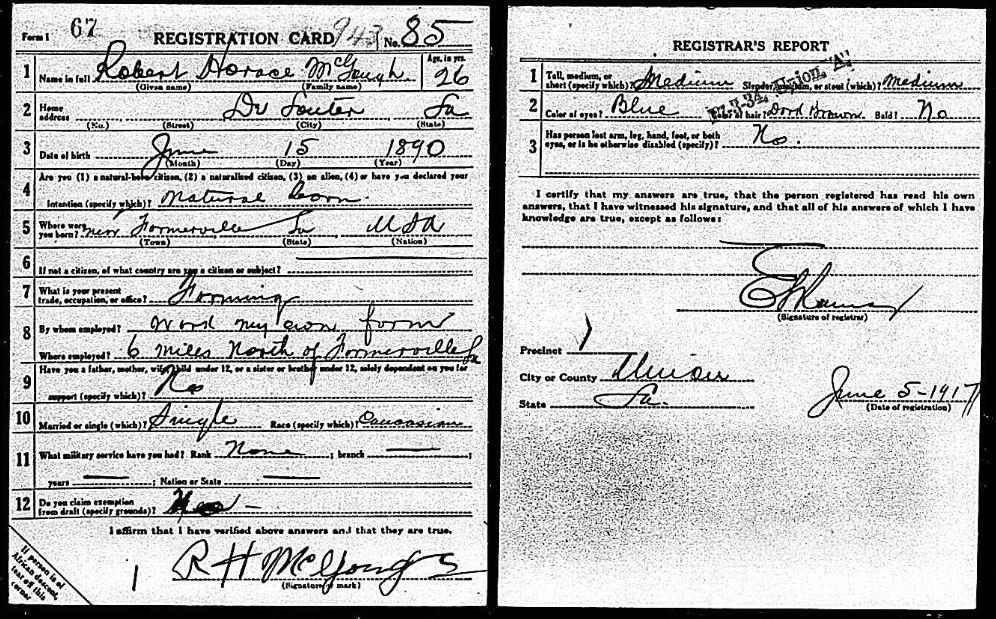 Form 1 67 REGISTRATION CARD 943 No. 85
1 Name in full Robert Horace McGough Age, in yrs. 26
(Given name) (Family name)
2 Home address De Souter La
(No.) (Street) (City) (State)
3 Date of birth June 15 1890
(Month) (Day) (Year)
4 Are you (1) a natural-born citizen, (2) a naturalized citizen, (3) an alien, (4) or have you declared your
intention (specify which)? Natural born.
5 Where were you born? near Farmerville La USA
(Town) (State) (Nation)
6 If not a citizen, of what country are you a citizen or subject?
7 What is your present trade, occupation, or office? Farming
8 By whom employed? Work my own farm
Where employed? 6 miles North of Farmerville La
9 Have you a father, mother, wife, child under 12, or a sister or brother under 12, solely dependent on you for
support (specify which)? No
10 Married or single (which)? Single Race (specify which)? Caucasian
11 What military service have you had? Rank None ; branch ;
years ; Nation or State
12 Do you claim exemption from draft (specify grounds)? No
I affirm that I have verified above answers and that they are true.
1 R H McGough
(Signature or mark)
If person is of African descent, tear off this corner
REGISTRAR'S REPORT
1 Tall, medium, or short (specify which)? Medium Slender, medium, or stout (which)? Medium
2 Color of eyes? Blue Color of hair? Dark Brown Bald? No
3 Has person lost arm, leg, hand, foot, or both
eyes, or is he otherwise disabled (specify)? No.
I certify that my answers are true, that the person registered has read his own
answers, that I have witnessed his signature, and that all of his answers of which I have
knowledge are true, except as follows:
(Signature of registrar)
Precinct 1
City or County Union
State La. June 5-1917
(Date of registration)